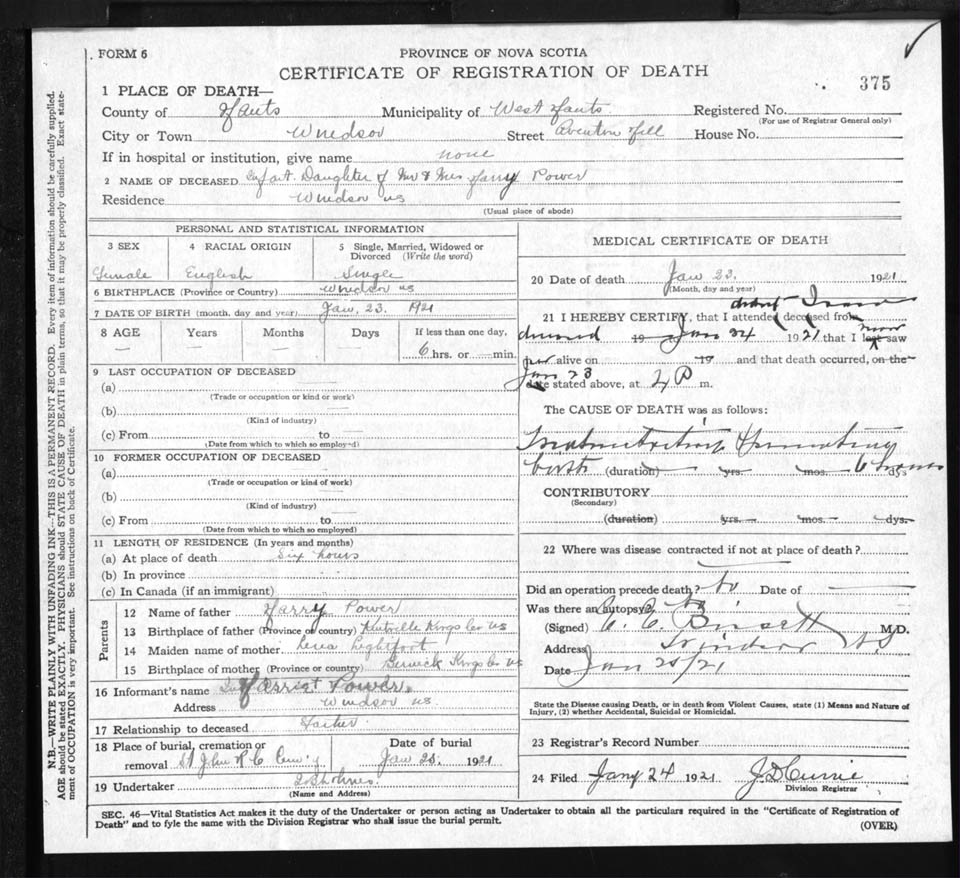 FORM 6
PROVINCE OF NOVA SCOTIA
CERTIFICATE OF REGISTRATION OF DEATH
375
1 PLACE OF DEATH—
County of Hants Municipality of West Hants Registered No.
(For use of Registrar General only)
City or Town Windsor Street Hill House No.
If in hospital or institution, give name none
2 NAME OF DECEASED Infant Daughter of Mr & Mrs Harry Power
Residence Windsor NS
(Usual place of abode)
PERSONAL AND STATISTICAL INFORMATION
3 SEX 4 RACIAL ORIGIN 5 Single, Married, Widowed or Divorced (Write the word)
Female English Single
6 BIRTHPLACE (Province or Country) Windsor NS
7 DATE OF BIRTH (month, day and year) Jan. 23. 1921
8 AGE Years Months Days If less than one day,
— — — 6 hrs. or — min.
9 LAST OCCUPATION OF DECEASED
(a)
(Trade or occupation or kind or work)
(b)
(Kind of industry)
(c) From to
(Date from which to which so employed)
10 FORMER OCCUPATION OF DECEASED
(a)
(Trade or occupation or kind of work)
(b)
(Kind of industry)
(c) From to
(Date from which to which so employed)
11 LENGTH OF RESIDENCE (In years and months)
(a) At place of death Six hours
(b) In province
(c) In Canada (if an immigrant)
Parents
12 Name of father Harry Power
13 Birthplace of father (Province or country) Kentville Kings Co NS
14 Maiden name of mother Lena Lightfoot
15 Birthplace of mother (Province or country) Berwick Kings Co NS
16 Informant's name Power
Address Windsor NS.
17 Relationship to deceased Father
18 Place of burial, cremation or removal St John R C Date of burial Jan 25. 1921
19 Undertaker
(Name and Address)
MEDICAL CERTIFICATE OF DEATH
20 Date of death Jan 23. 1921
(Month, day and year)
21 I HEREBY CERTIFY, that I attended deceased from
19 Jan 24 1921 that I last saw
her alive on 19 and that death occurred, on the
Jan 23
date stated above, at 2 P m.
The CAUSE OF DEATH was as follows:
birth (duration) yrs. mos. 6 hours dys
CONTRIBUTORY
(Secondary)
(duration) yrs. mos. dys.
22 Where was disease contracted if not at place of death?
Did an operation precede death? No Date of
Was there an autopsy? no
(Signed) Bissett M.D.
Address Windsor NS
Date Jan 25/21
State the Disease causing Death, or in death from Violent Causes, state (1) Means and Nature of Injury, (2) whether Accidental, Suicidal or Homicidal.
23 Registrar's Record Number
24 Filed Jany 24 1921 J D Currie
Division Registrar
SEC. 46—Vital Statistics Act makes it the duty of the Undertaker or person acting as Undertaker to obtain all the particulars required in the "Certificate of Registration of
Death" and to fyle the same with the Division Registrar who shall issue the burial permit.
(OVER)
N.B.—WRITE PLAINLY WITH UNFADING INK—THIS IS A PERMANENT RECORD. Every item of information should be carefully supplied.
AGE should be stated EXACTLY. PHYSICIANS should STATE CAUSE OF DEATH in plain terms, so that it may be properly classified. Exact state-
ment of OCCUPATION is very important. See instructions on back of Certificate.